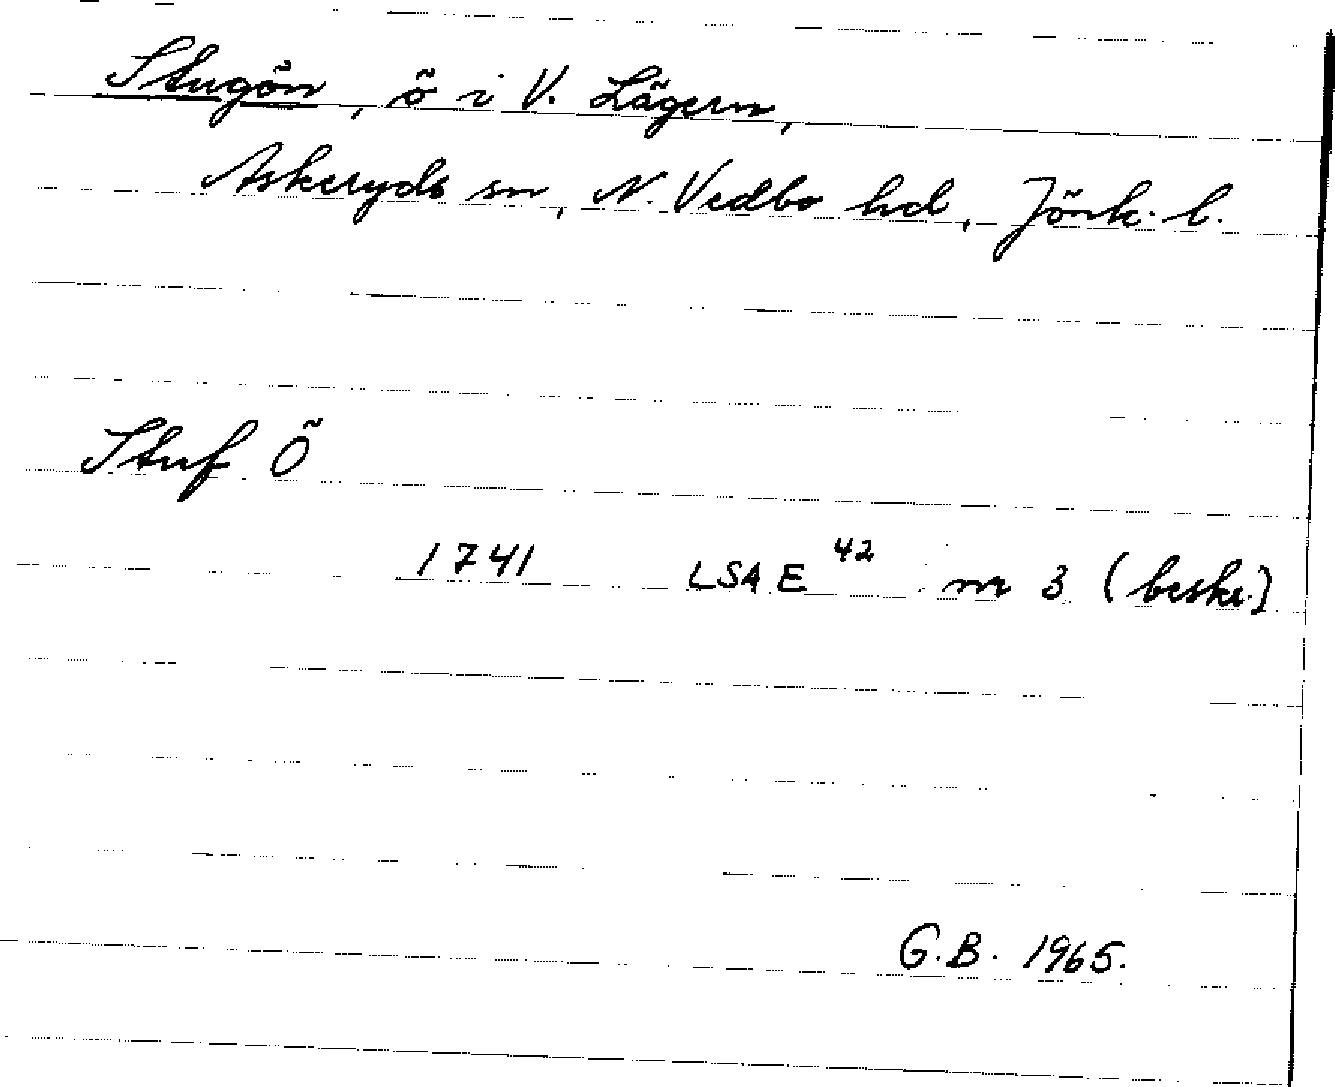 Stugön, ö i V. Lägern,
Askeryds sn, N. Vedbo hd, Jönk. l.
Stuf Ö
1741 LSA E 42 m 3 (beskr.)
G.B. 1965.